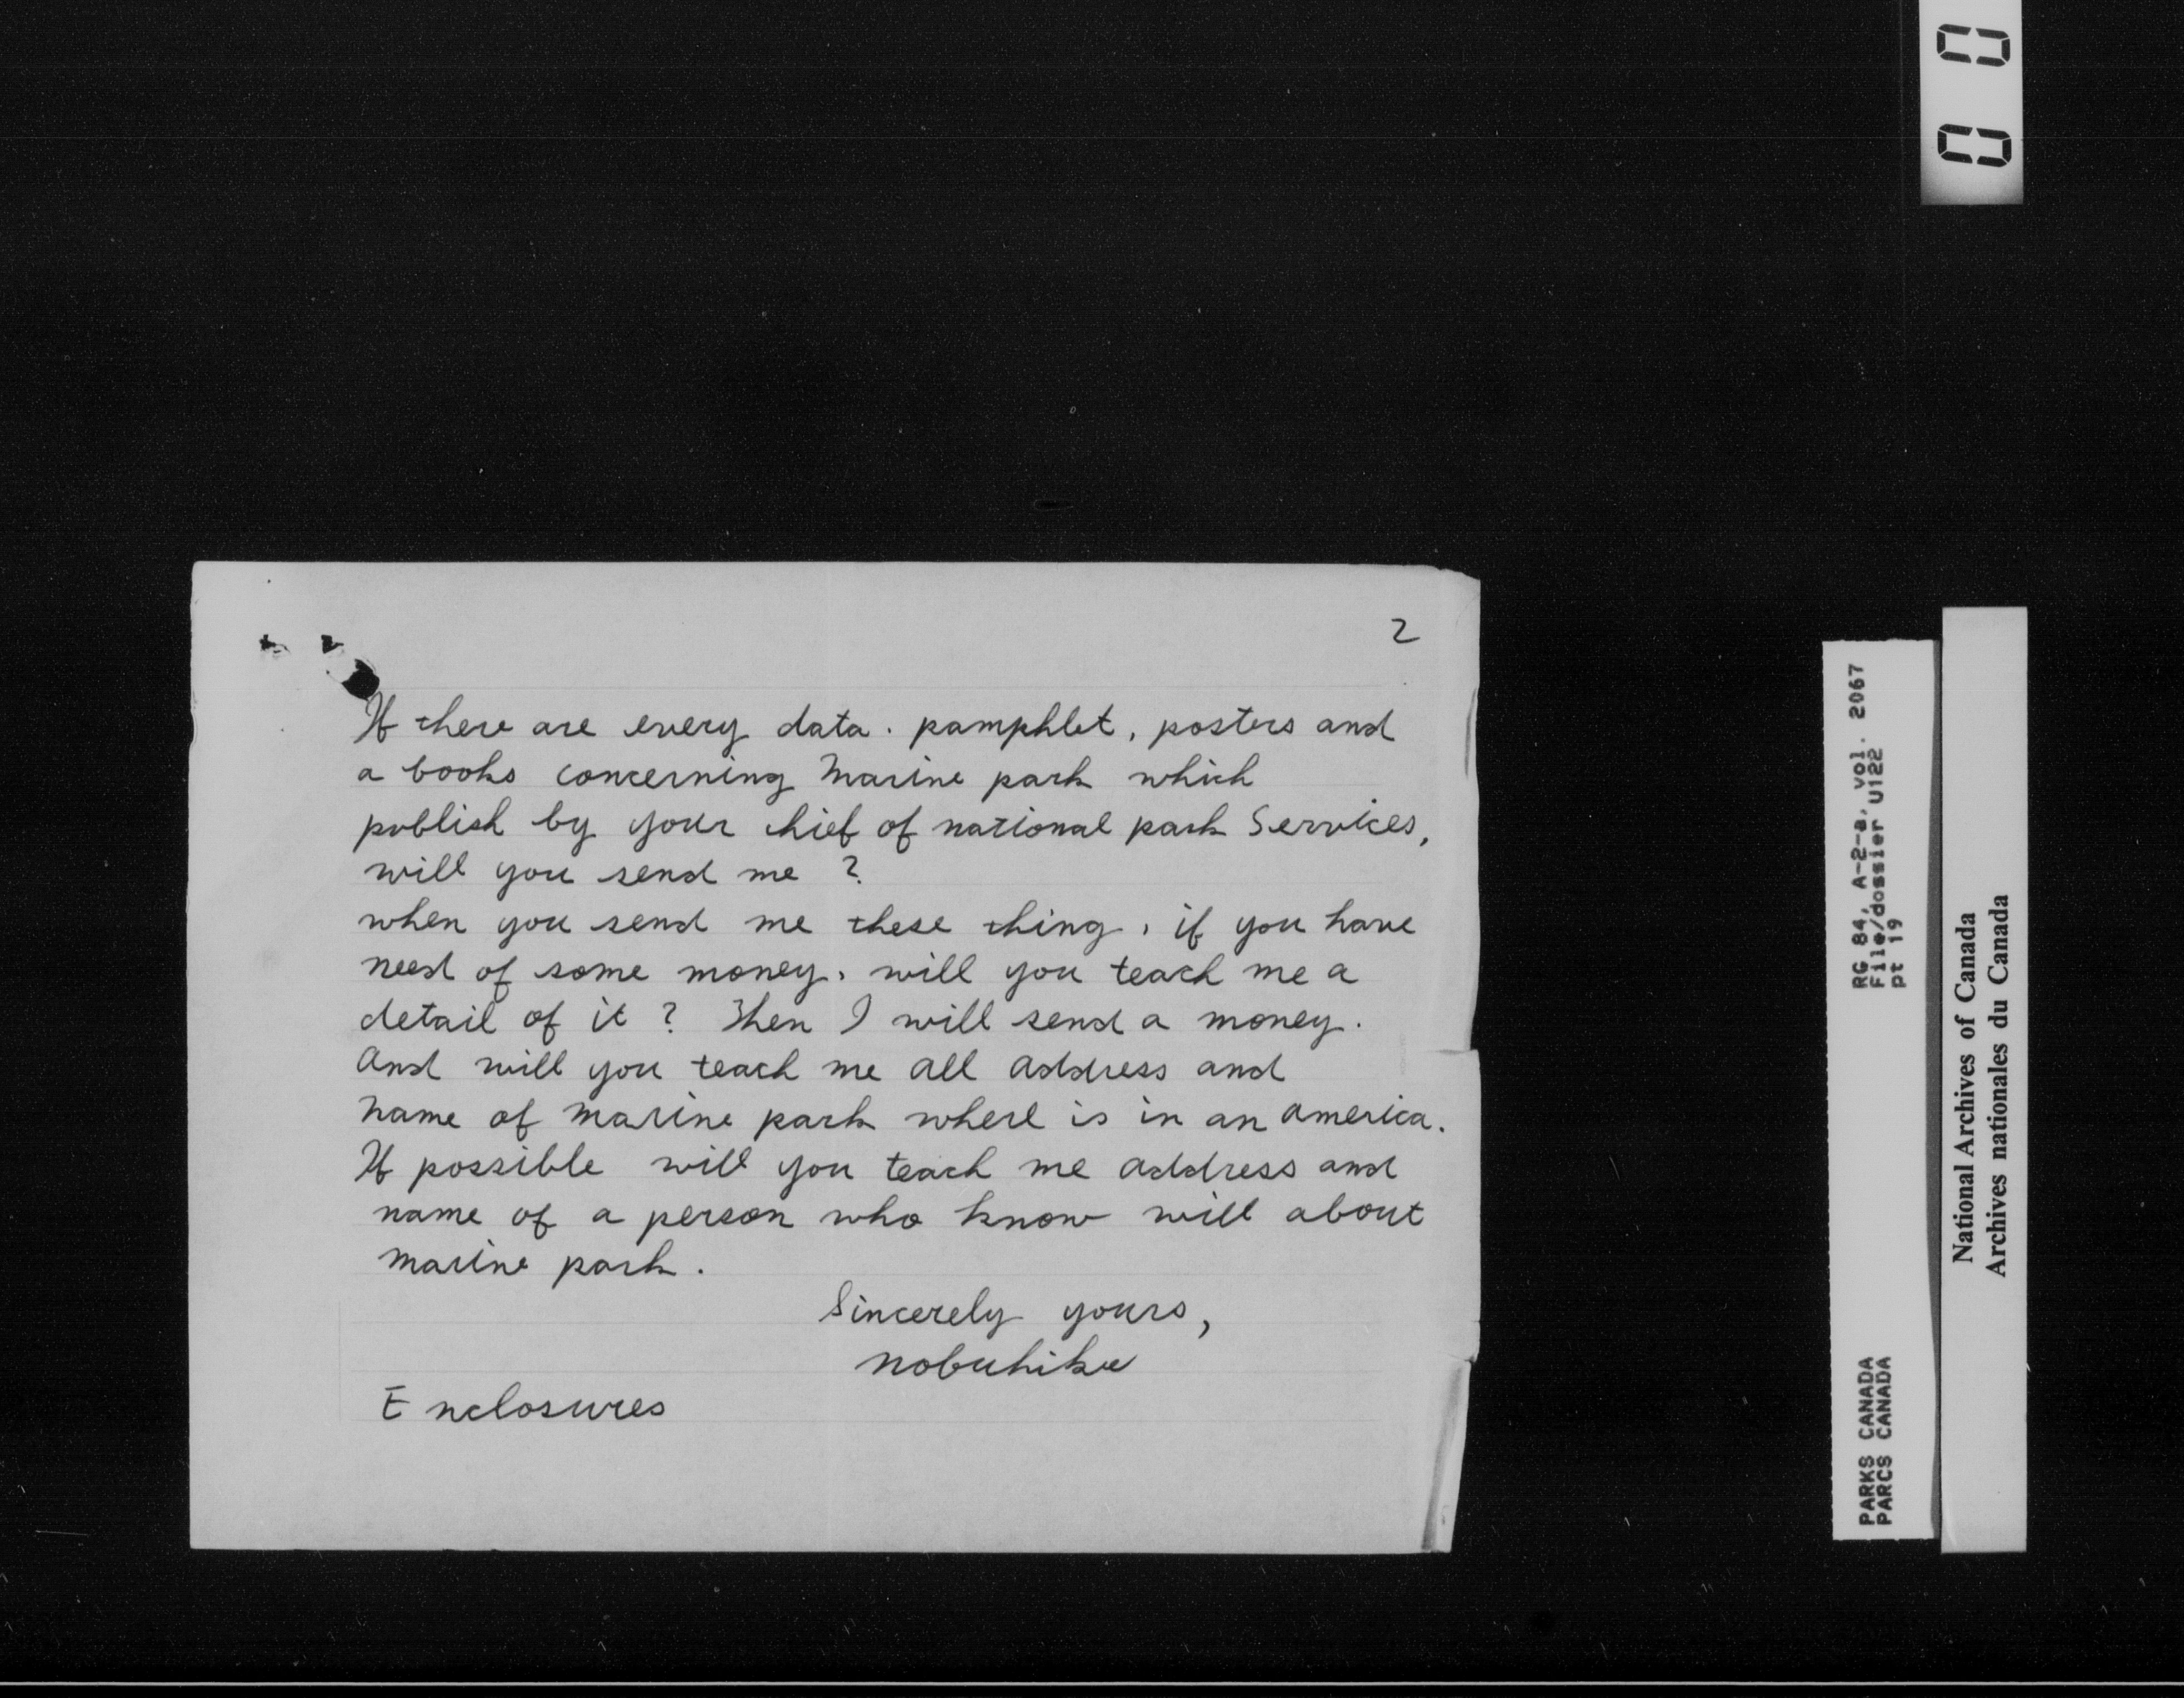 2
If there are every data. pamphlet, posters and
a books concerning Marine park which
publish by your chief of national park Services,
will you send me ?
when you send me these thing, if you have
need of some money, will you teach me a
detail of it ? Then I will send a money.
And will you teach me all address and
name of marine park where is in an america.
If possible will you teach me address and
name of a person who know will about
marine park.
Sincerely yours,
Nobuhiko
Enclosures
00
RG 84, A-2-a, vol. 2067
File/dossier U122
pt 19
PARKS CANADA
PARCS CANADA
National Archives of Canada
Archives nationales du Canada